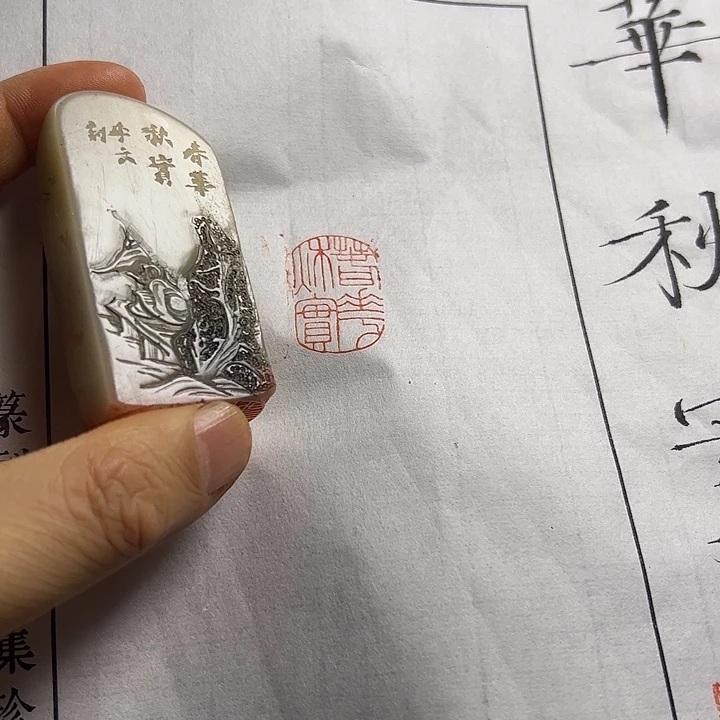 華秋實
春華
秋實
春華
秋實
刻
篆刻
集珍